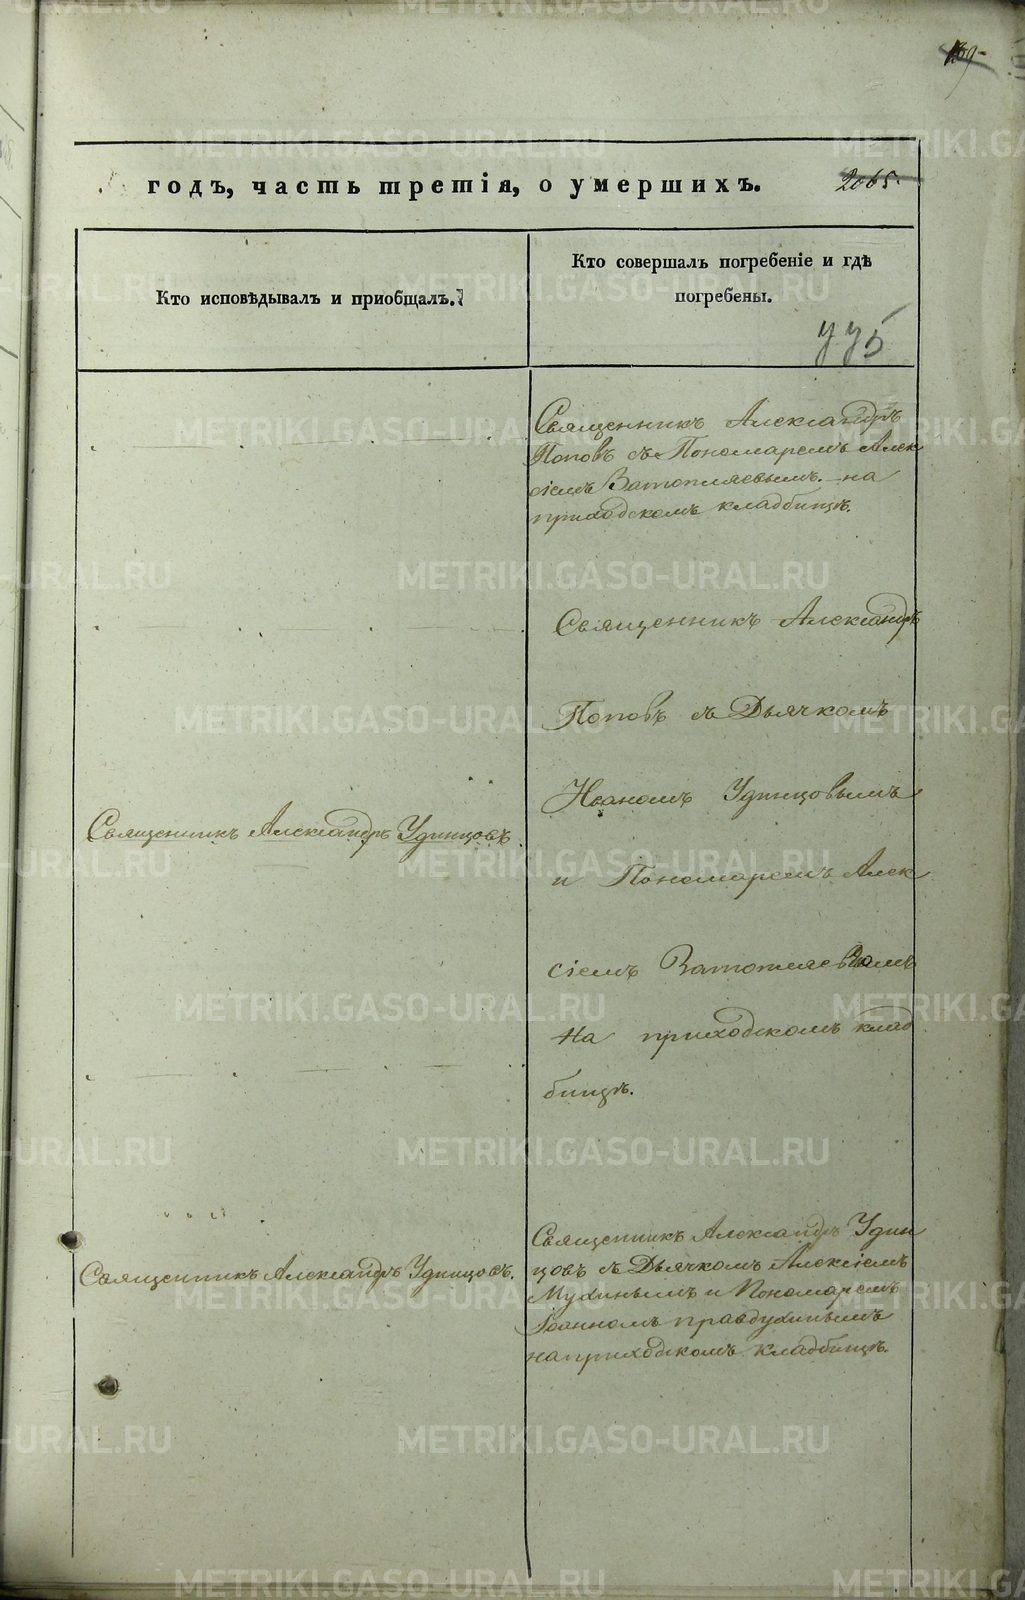 139-
годъ, часть третія, о умершихъ.
2065.
Кто исповѣдывалъ и пріобщалъ.
Кто совершалъ погребеніе и гдѣ
погребены.
775
Священникъ Александръ
Поповъ съ Пономаремъ Алек
сіемъ Ватопляевымъ на
приходскомъ кладбищѣ.
Священникъ Александръ
Поповъ съ Дьячкомъ
Иваномъ Удинцовымъ
Священникъ Александръ Удинцовъ.
и Пономаремъ Алек
сіемъ
на приходскомъ клад
бищѣ.
Священникъ Александръ Удинцовъ.
Священникъ Александръ Удин
цовъ съ Дьячкомъ Алексіемъ
Мухинымъ и Пономаремъ
Іоанномъ Правдухинымъ
на приходскомъ кладбищѣ.
METRIKI.GASO-URAL.RU